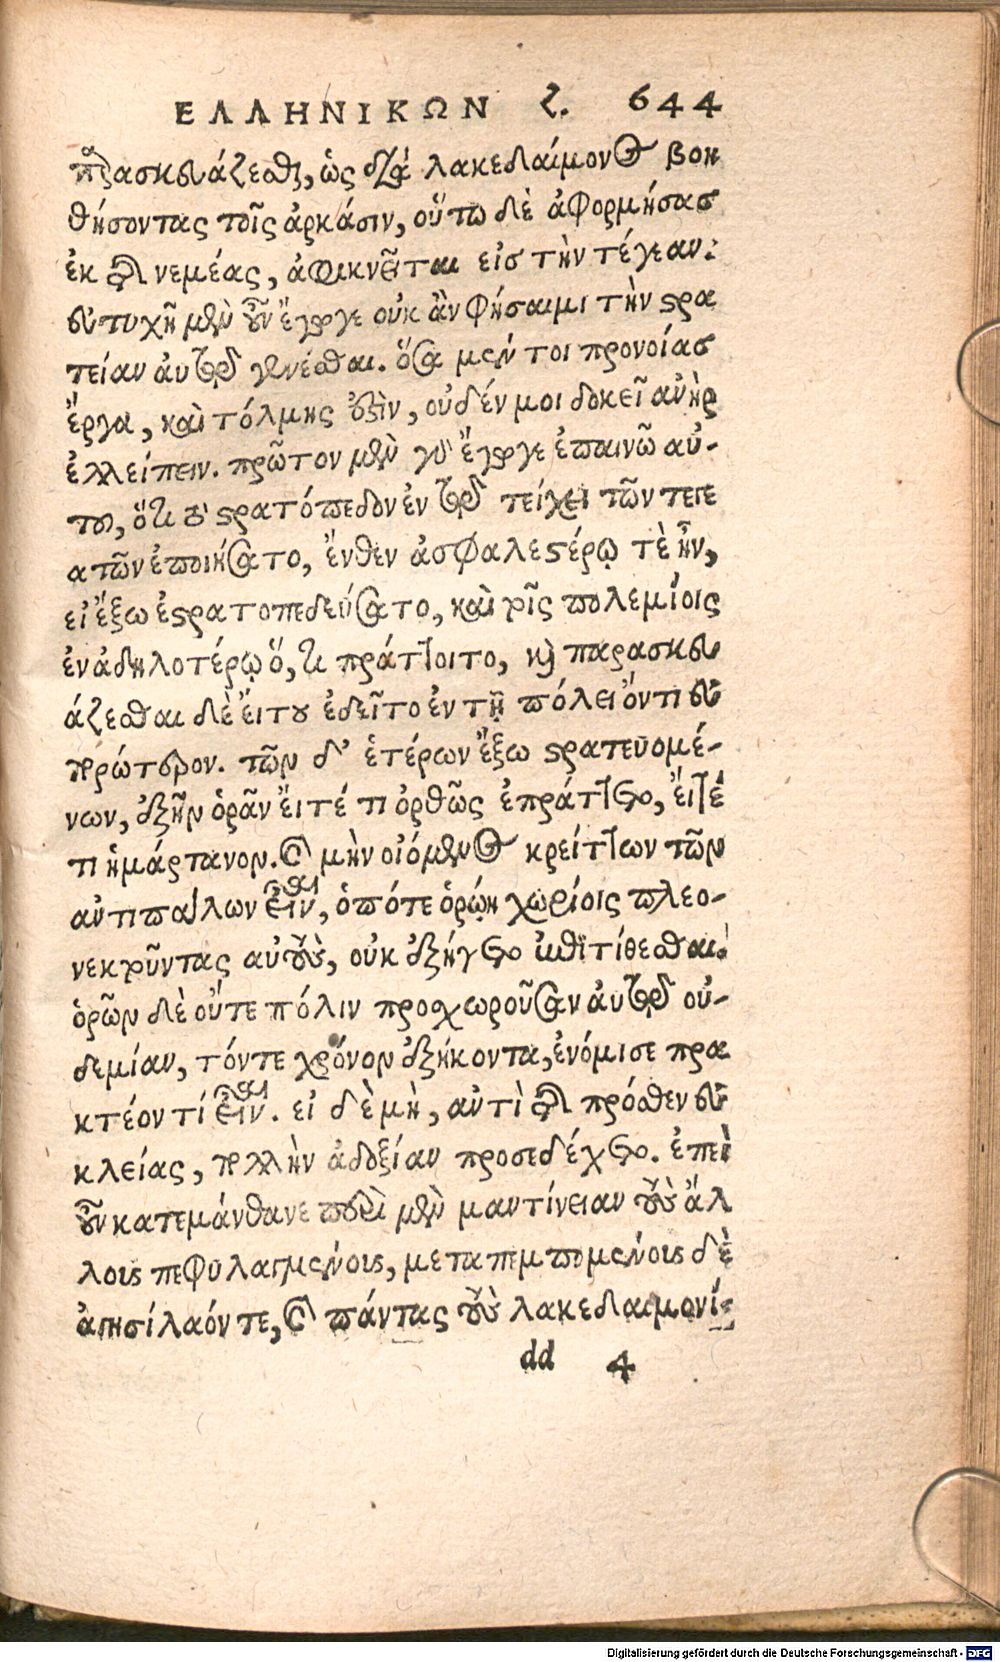 ΕΛΛΗΝΙΚΩΝ ζ. 644
παρασκευάζεσθαι, ὡς διὰ λακεδαίμονος βοη
θήσοντας τοῖς ἀρκάσιν, οὕτω δὲ ἀφορμήσας
ἐκ τῆς νεμέας, ἀφικνεῖται εἰς τὴν τέγεαν.
εὐτυχῆ μὲν οὖν ἔγωγε οὐκ ἂν φήσαιμι τὴν στρα
τείαν αὐτῷ γενέσθαι. ὅσα μέν τοι προνοίας
ἔργα, καὶ τόλμης ἐστὶν, οὐδέν μοι δοκεῖ ἀνὴρ
ἐλλείπειν. πρῶτον μὲν γὰρ ἔγωγε ἐπαινῶ αὐ-
τοῦ, ὅτι τὸ στρατόπεδον ἐν τῷ τείχει τῶν τεγε
ατῶν ἐποιήσατο, ἔνθεν ἀσφαλεστέρῳ τὲ ἦν,
εἰ ἔξω ἐστρατοπεδεύσατο, καὶ τοῖς πολεμίοις
ἐν ἀδηλοτέρῳ ὅ,τι πράττοιτο, καὶ παρασκευ
άζεσθαι δὲ εἴ του ἐδεῖτο ἐν τῇ πόλει ὄντι εὐ
πορώτερον. τῶν δ' ἑτέρων ἔξω στρατευομέ-
νων, ἐξῆν ὁρᾶν εἴτέ τι ὀρθῶς ἐπράττετο, εἴτέ
τι ἡμάρτανον. καὶ μὴν οἰόμενος κρείττων τῶν
ἀντιπάλων εἶναι, ὁπότε ὁρῴη χωρίοις πλεο-
νεκτοῦντας αὐτοὺς, οὐκ ἐξήγετο ἐπιτίθεσθαι.
ὁρῶν δὲ οὔτε πόλιν προσχωροῦσαν αὐτῷ οὐ-
δεμίαν, τόντε χρόνον ἐξήκοντα, ἐνόμισε πρα
κτέον τί εἶναι. εἰ δὲ μὴ, ἀντὶ τῆς πρόσθεν εὐ
κλείας, πολλὴν ἀδοξίαν προσεδέχετο. ἐπεὶ
οὖν κατεμάνθανε περὶ μὲν μαντίνειαν τοὺς ἄλ
λους πεφυλαγμένους, μεταπεμπομένους δὲ
ἀγησίλαόν τε, καὶ πάντας τοὺς λακεδαιμονί-
dd 4
Digitalisierung gefördert durch die Deutsche Forschungsgemeinschaft - DFG